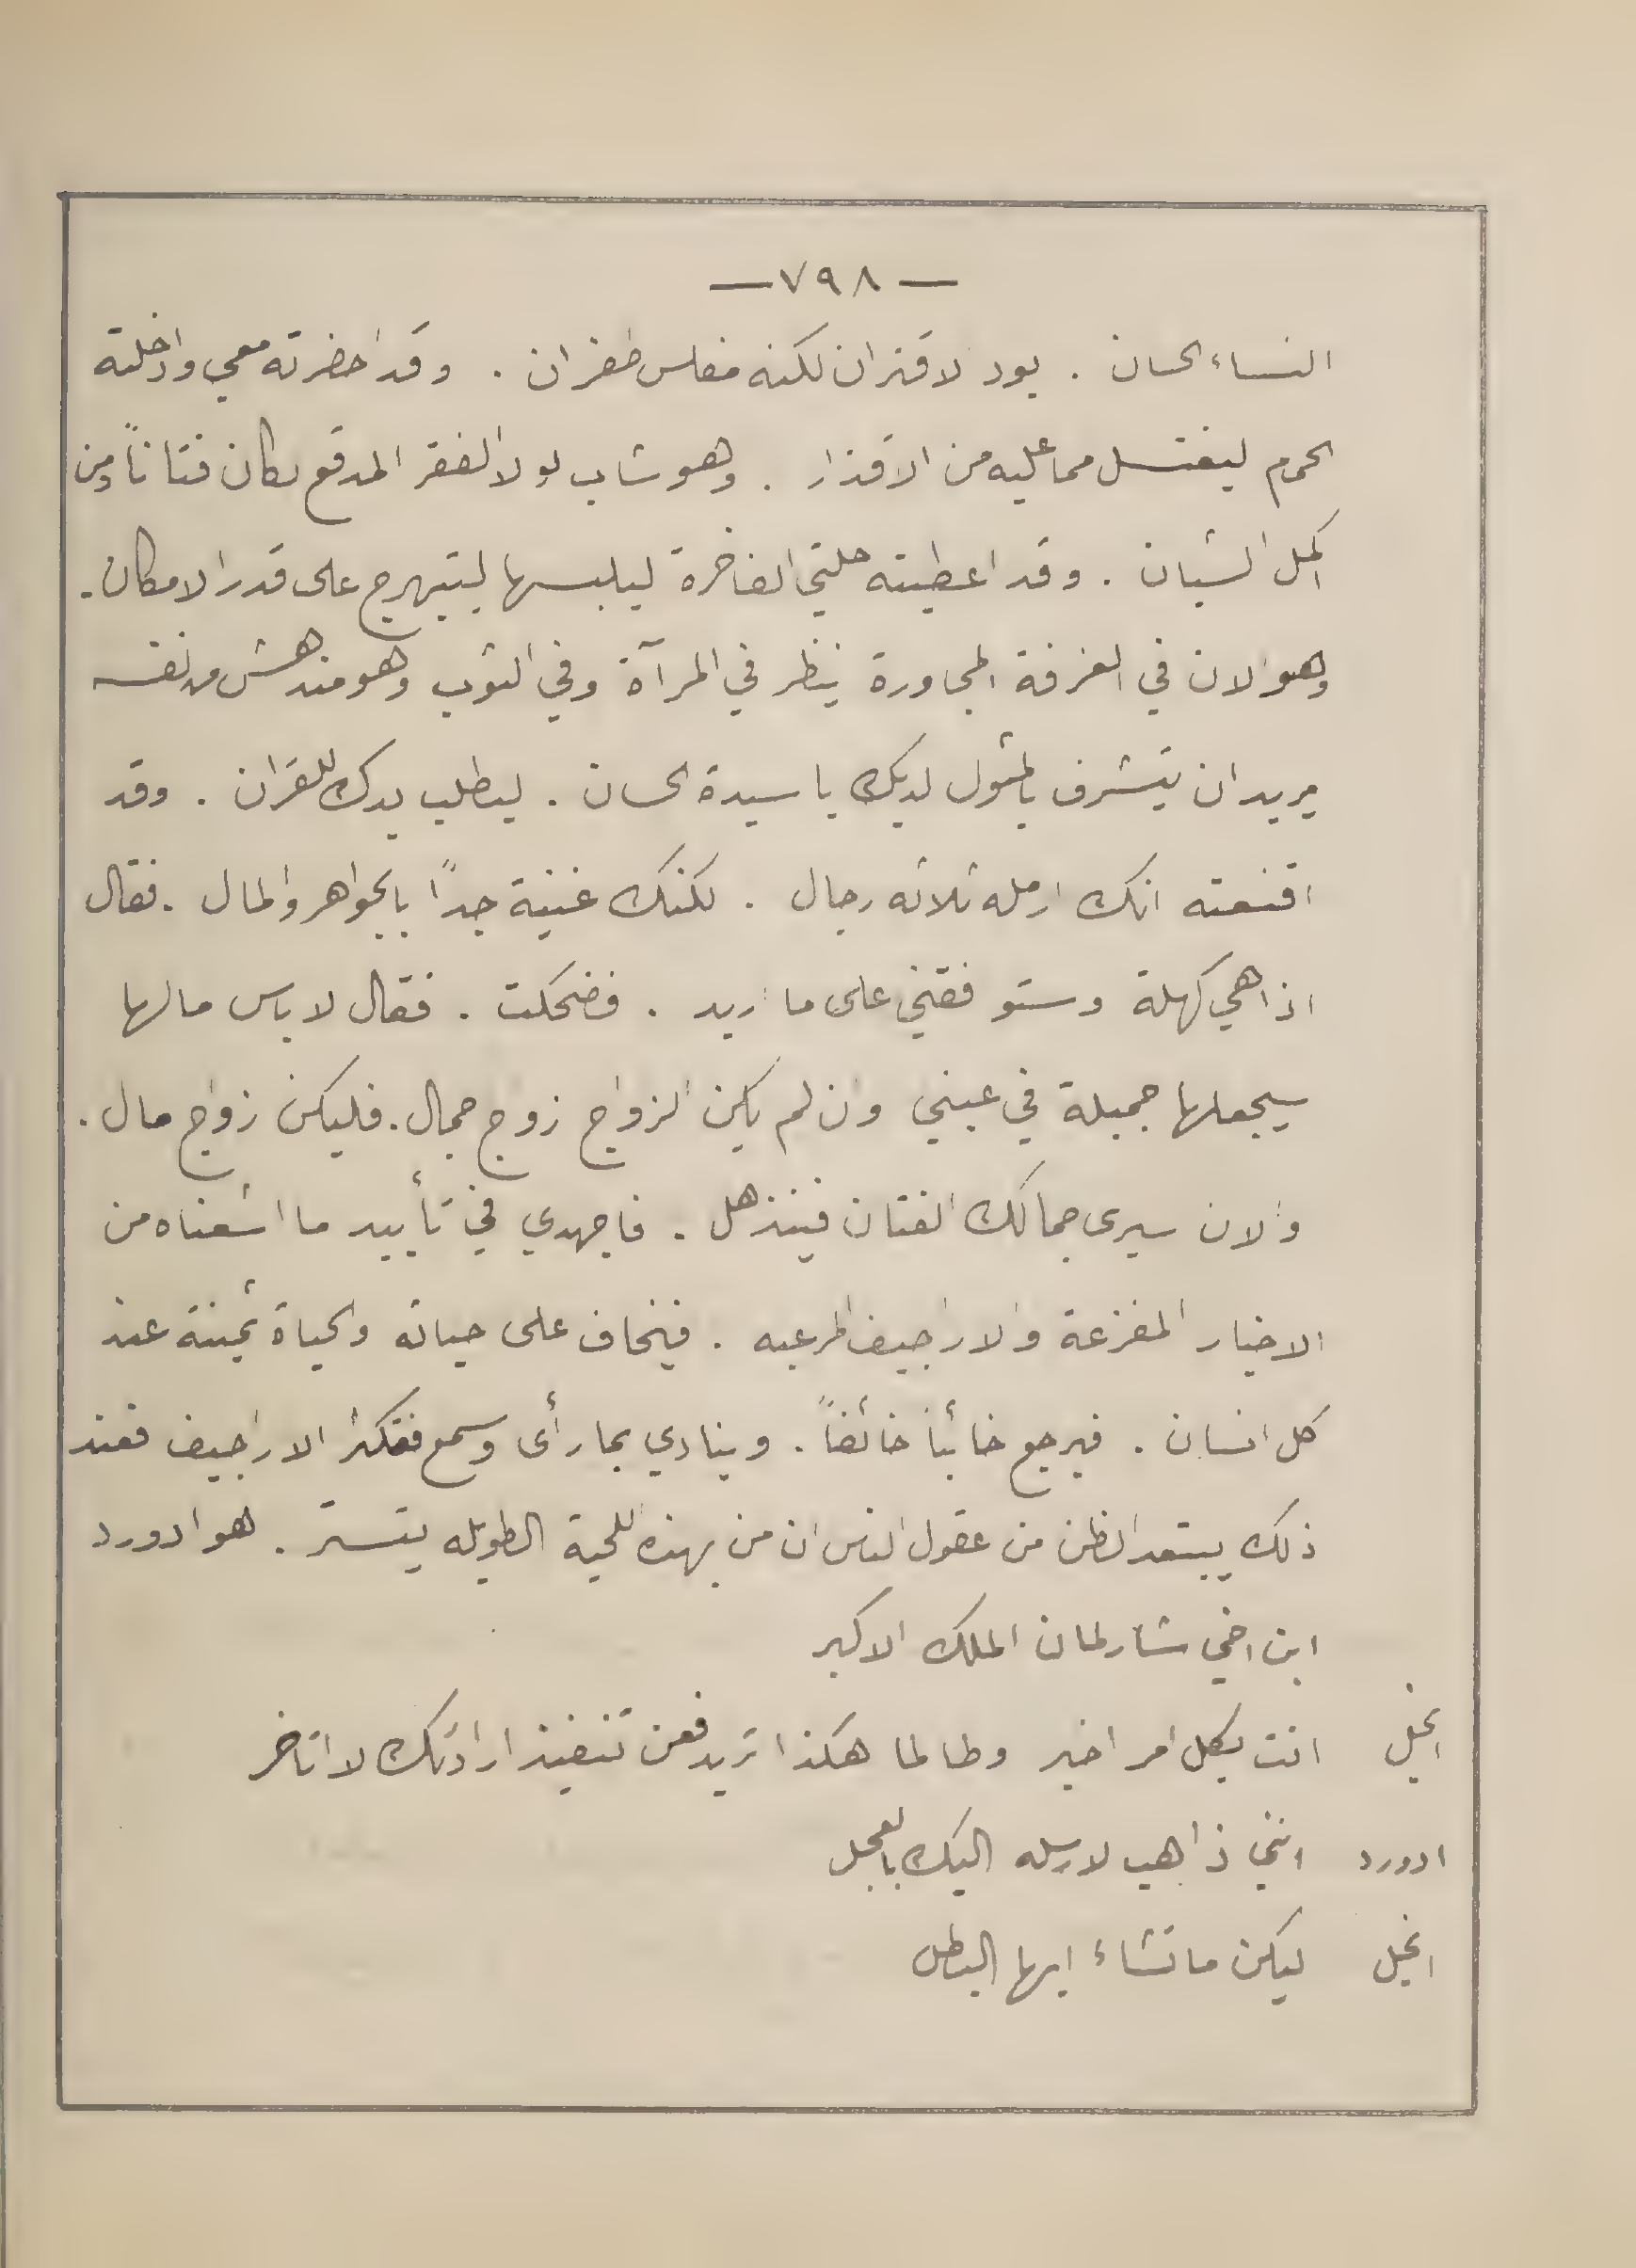 — ٧٩٨ —
النساء الحسان . يود الاقتران لكنه مفلس طفران . وقد احضرته معي وادخلته
الحمام ليغتسل مما عليه من الاقذار . وهو شاب لولا الفقر المدقع لكان فتاناً ومن
اكمل الشبان . وقد اعطيته حلتي الفاخرة ليلبسها ليتبهرج على قدر الامكان .
وهو الان في الغرفة المجاورة ينظر في المرآة وفي الثوب وهو مندهش من نفسه
يريد ان يتشرف بالمثول لديك يا سيدة الحسان . ليطلب يدك للقران . وقد
اقنعته انك ارمله ثلاثه رجال . لكنك غنية جداً بالجواهر والمال . فقال
اذا هي كهلة وستوفقني على ما اريد . فضحكت . فقال لا باس مالها
سيجعلها جميلة في عيني وان لم يكن الزواج زواج جمال . فليكن زواج مال .
والان سيرى جمالك الفتان فينذهل . فاجهدي في تأييد ما اشعناه من
الاخبار المفزعة والاراجيف المرعبه . فيخاف على حياته والحياة ثمينة عند
كل انسان . فيرجع خائباً خائفاً . وينادي بما رأى وسمع فتكثر الاراجيف فعند
ذلك يبتعد الظن من عقول الناس ان من بهذه اللحية الطويله يتستر . هو ادورد
ابن اخي شارلمان الملك الاكبر
انجل انت بكل امر اخبر وطالما هكذا تريد فعن تنفيذ ارادتك لا اتاخر
ادورد انني ذاهب لارسله اليك بالعجل
انجل ليكن ما تشاء ايها البطل